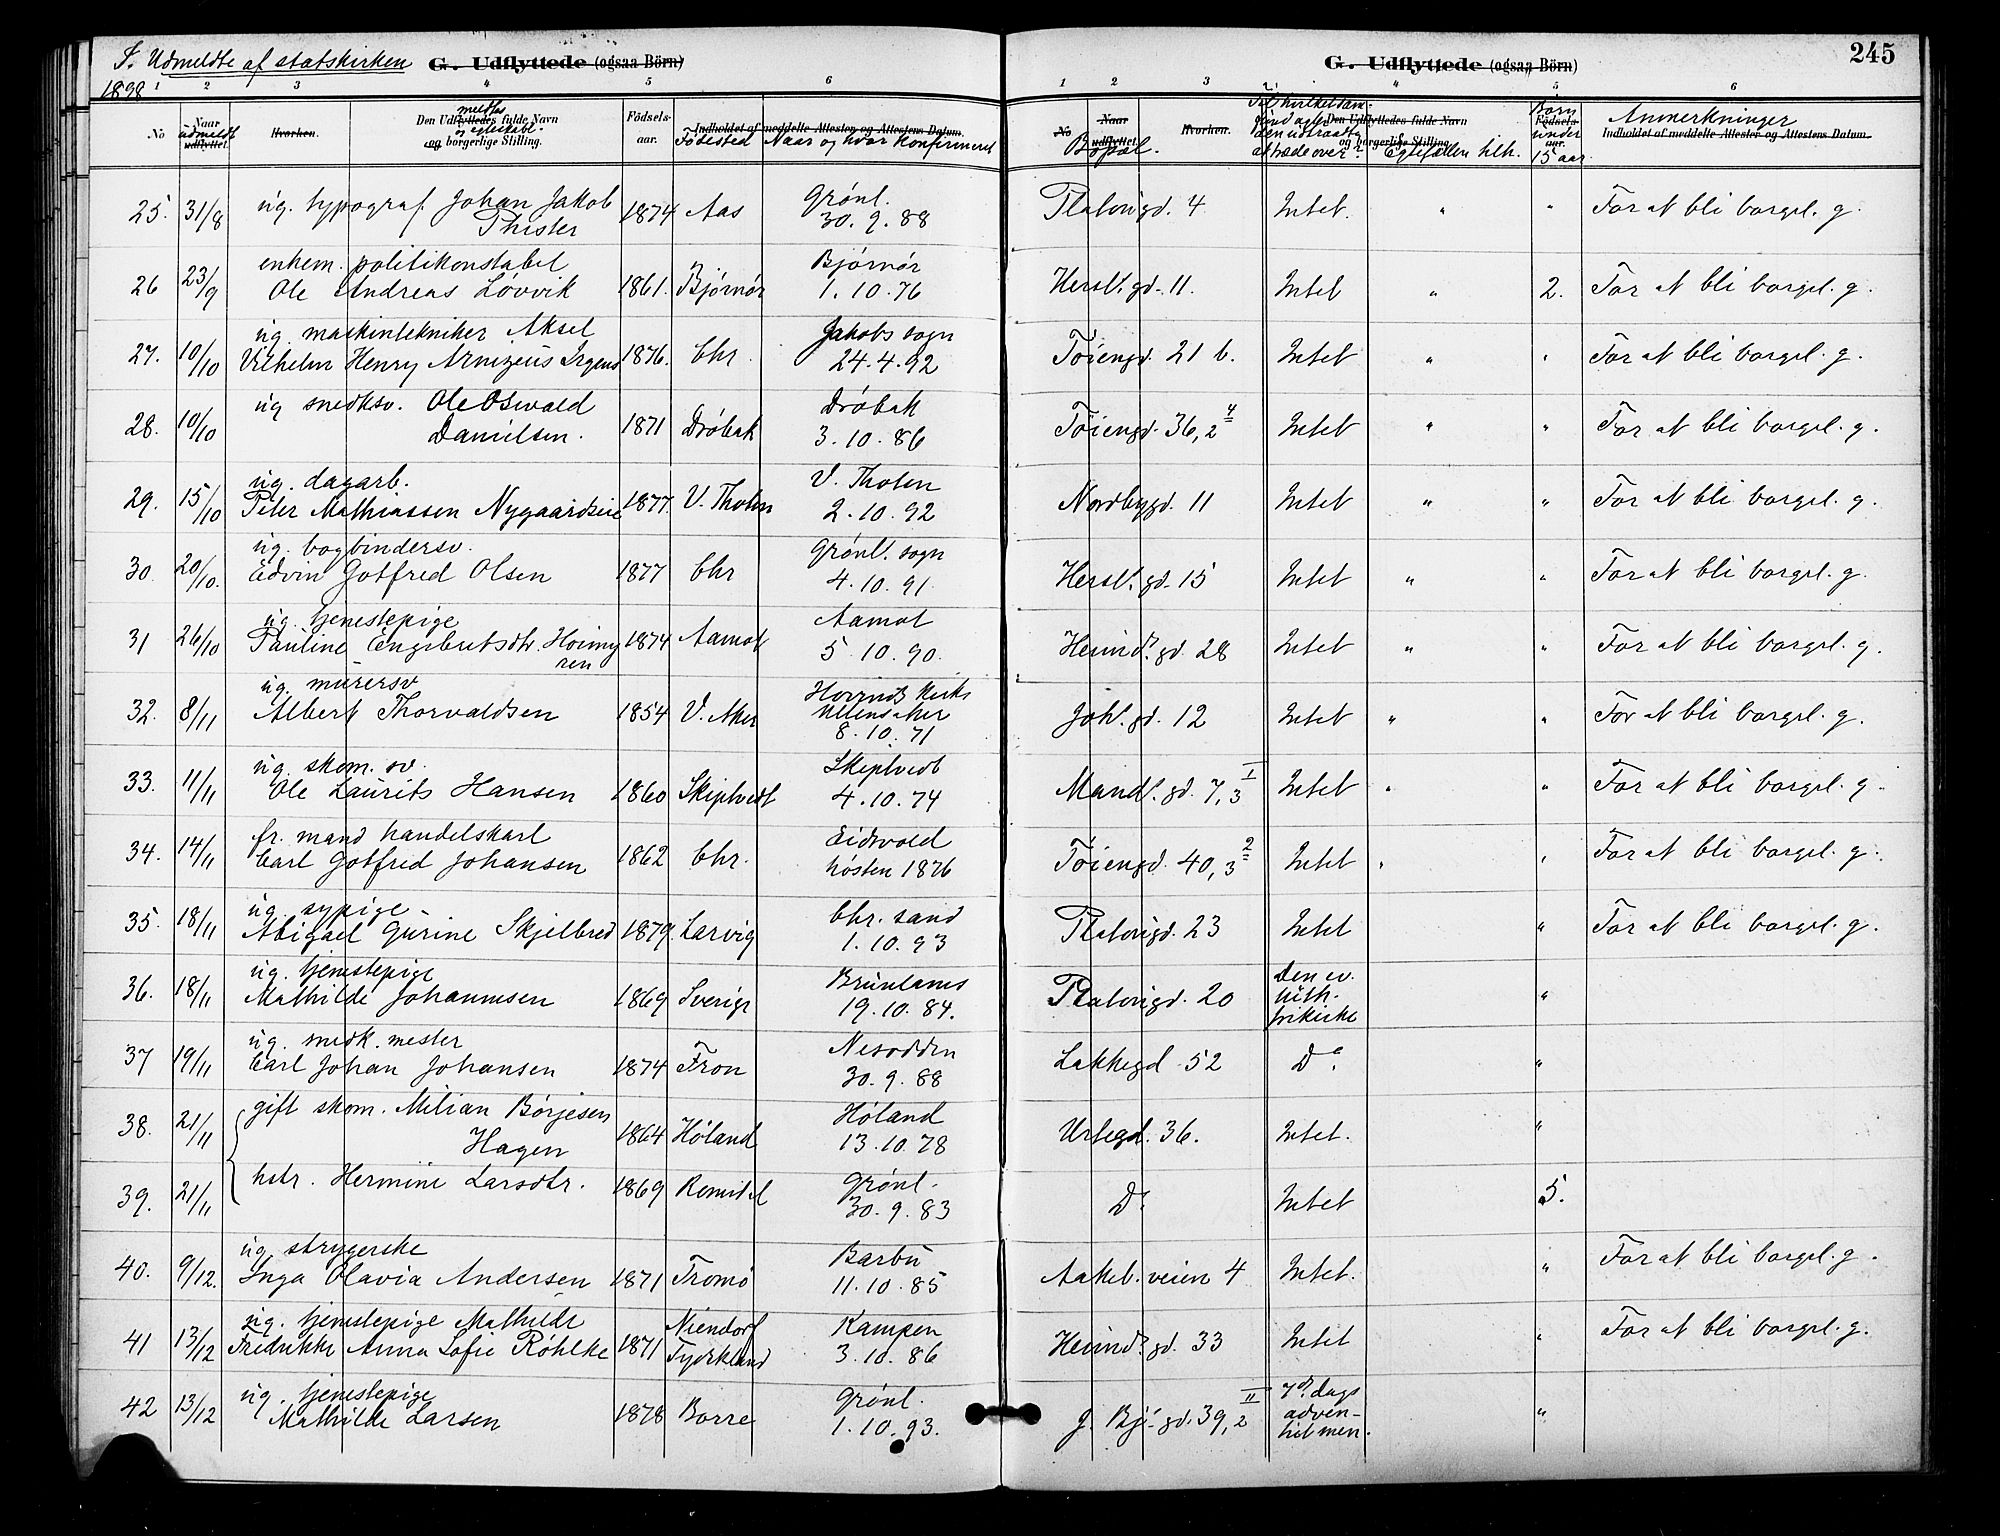 I. Udmeldte af statskirken G. Udflyttede (ogsaa Börn)
1898
1 2 3 4 5 6
No Naar udmeldt udflyttet. Hvorhen. Den Udflyttedes meldtes fulde Navn og borgerlige Stilling. Födsels-aar. Indholdet af meddelte Attester og Attestens Datum. Födested Naar og hvor Konfirmeret
G. Udflyttede (ogsaa Börn) 245
1 2 3 4 5 6
No Naar udflyttet. Bopæl. Hvorhen. Til hvilket sam-
den udtraadte
at træde over? Den Udflyttedes fulde Navn og borgerlige Stilling. Egtefællen tilh. Födsels-aar. Börn under 15 aar. Anmerkninger Indholdet af meddelte Attester og Attestens Datum.
25. 31/8 ug. typograf Johan Jakob Thister 1874 Aas Grönl. 30.9.88 Platousgd. 4 Intet. " " For at bli borgel. g.
26 23/9 enkem. politikonstabel Ole Andreas Lövvik 1861. Björnör Björnör 1.10.76 Hersl. gd. 11. Intet " 2. For at bli borgel. g.
27. 10/10 ug. maskintekniker Aksel Vilhelm Henry Arnizeus Irgens 1876. Chr. Jakobs sogn 24.4.92 Töiengd. 21 b. Intet " " For at bli borgel. g.
28. 10/10 ug snedksv. Ole Oswald Danielsen. 1871 Dröbak Dröbak 3.10.86 Töiengd. 36, 2 4 Intet " " For at bli borgel. g.
29. 15/10 ug. dagarb. Peter Mathiassen Nygaardseie 1877. V. Thoten V. Thoten 2.10.92 Nordbygd. 11 Intet " " For at bli borgel. g.
30. 20/10. ug. bogbindersv. Edvin Gotfred Olsen 1877 Chr Grönl. sogn 4.10.91. Hersl. gd. 15 Intet " " For at bli borgel. g.
31 26/10 ug. tjenestepige Pauline Engebretsdtr. Hoimyren 1874 Aamot Aamot 5.10.90. Heimd. gd. 28 Intet " " For at bli borgel. g.
32. 8/11 ug. murersv Albert Thorvaldsen 1854 V. Aker Hovinds kirke Ullensaker 8.10.71 Joh. gd. 12 Intet " " For at bli borgel. g.
33. 11/11 ug. skom. sv. Ole Laurits Hansen 1860 Skiptvedt Skiptvedt 4.10.74 Mandl. gd. 7, 3 I Intet " " For at bli borgel. g.
34. 14/11 fr. mand handelskarl Carl Gotfred Johansen 1862 Chr. Eidsvold hösten 1876 Töiengd. 40, 3 2 Intet " " For at bli borgel. g.
35. 18/11 ug. sypige Abigael Gurine Skjelbred 1879. Larvig Chr. sand 1.10.93 Platousgd. 23 Intet " For at bli borgel. g.
36. 18/11 ug. tjenestepige Mathilde Johannesen 1869 Sverige Brunlanes 19.10.84. Platousgd. 20 Den ev. luth. frikirke "
37 19/11 ug. snedk. mester Carl Johan Johansen 1874 Fron Nesodden 30.9.88 Lakkegd 52 Do "
38. 21/11 gift skom. Milian Börjesen Hagen 1864 Höland Höland 13.10.78 Urtegd. 36. Intet. "
39. 21/11 hstr. Hermine Larsdtr. 1869 Grönl. 30.9.83 Do Intet 5.
40. 9/12. ug. strygerske Inga Olavia Andersen 1871 Tromö Barbu 11.10.85 Aakeb. veien 4 Intet. " For at bli borgel. g.
41 13/12 ug. tjenestepige Mathilde Fredrikke Anna Sofie Röhlke 1871 Niendorf Tydskland Kampen 3.10.86 Heimd. gd. 33 Intet " For at bli borgel. g.
42 13/12 ug. tjenestepige Mathilde Larsen 1878 Borre Grönl. 1.10.93. g. Bj. gd. 39, 2 II 7de dags adventistmen. "